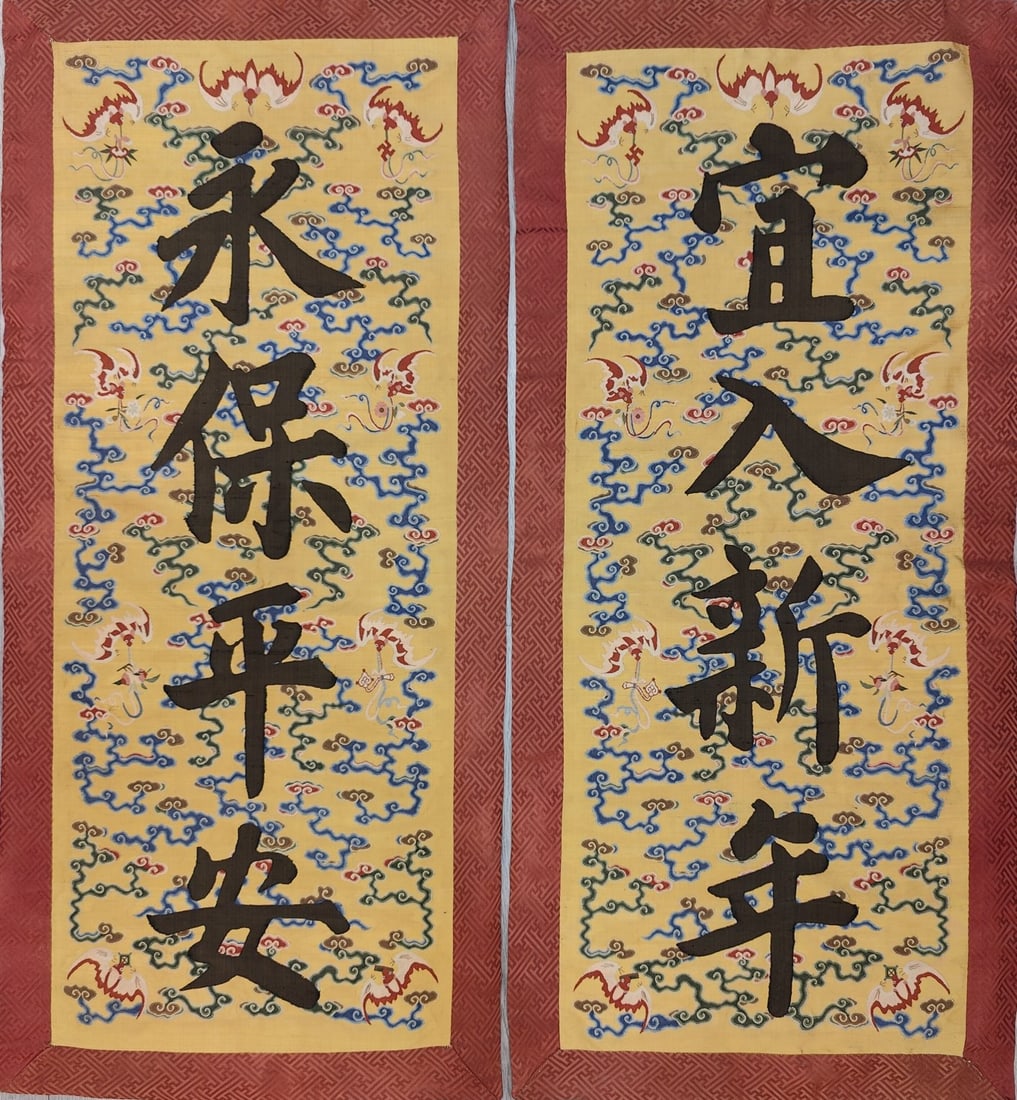 宜入新年
永保平安